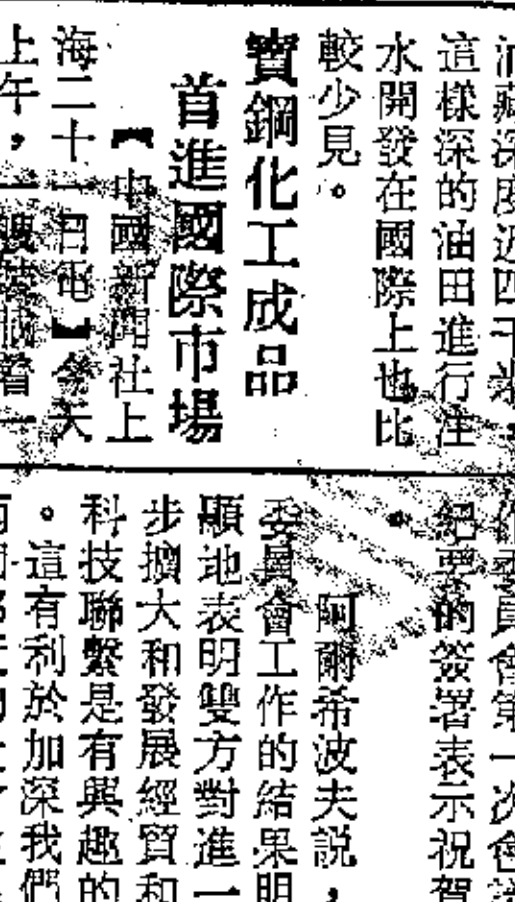 油藏深度近四千米，
這樣深的油田進行注
水開發在國際上也比
較少見。
寶鋼化工成品
首進國際市場
【中國新聞社上
海二十一日電】今天
上午，一艘裝
作委員會第一次會議
紀要的簽署表示祝賀
。
阿爾希波夫説，
委員會工作的結果明
顯地表明雙方對進一
步擴大和發展經貿和
科技聯繫是有興趣的
。這有利於加深我們